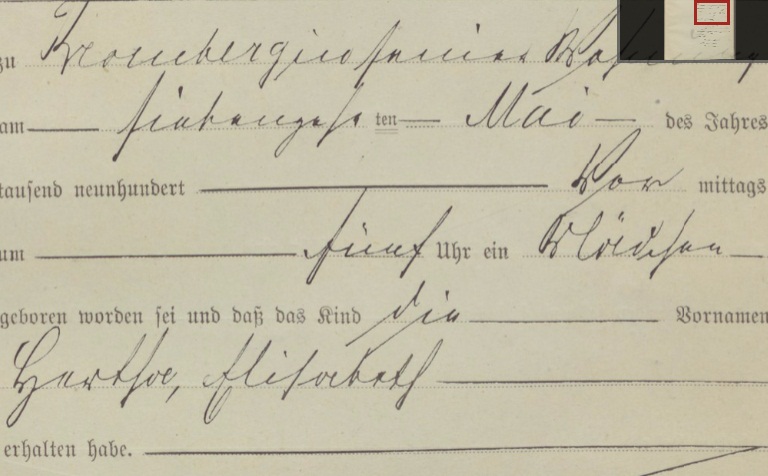 zu Bromberg in seiner Wohnung
am siebenzehn ten Mai des Jahres
tausend neunhundert Vor mittags
um fünf Uhr ein Mädchen
geboren worden sei und daß das Kind die Vornamen
Hertha, Elisabeth
erhalten habe.